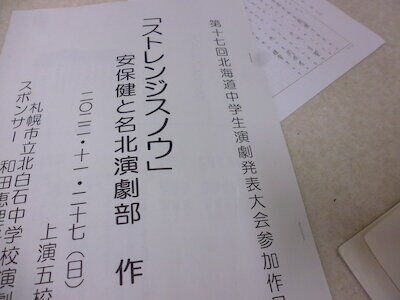 第十七回北海道中学生演劇発表大会参加作品
「ストレンジスノウ」
安保健と名北演劇部 作
二〇二二・十一・二十七(日)
上演五校
札幌市立北白石中学校演劇
スポンサー 和田恵理